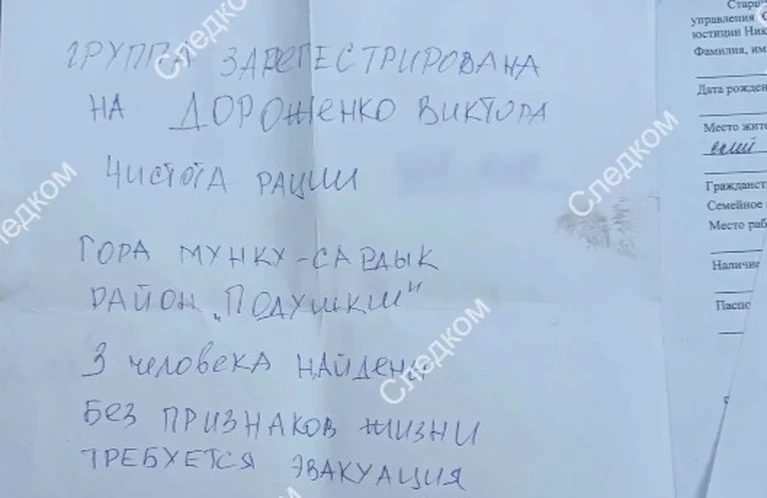 ГРУППА ЗАРЕГЕСТРИРОВАНА
НА ДОРОЖЕНКО ВИКТОРА
ЧИСТОТА РАЦИИ
ГОРА МУНКУ-САРДЫК
РАЙОН „ПОДУШКИ"
3 ЧЕЛОВЕКА НАЙДЕНЫ
БЕЗ ПРИЗНАКОВ ЖИЗНИ
ТРЕБУЕТСЯ ЭВАКУАЦИЯ
Следком
Следком
Следком
Следком
Следком
управления
юстиции Ник
Фамилия, им
Дата рожден
Место жит
Гражданст
Семейное
Место раб
Наличие
Паспо